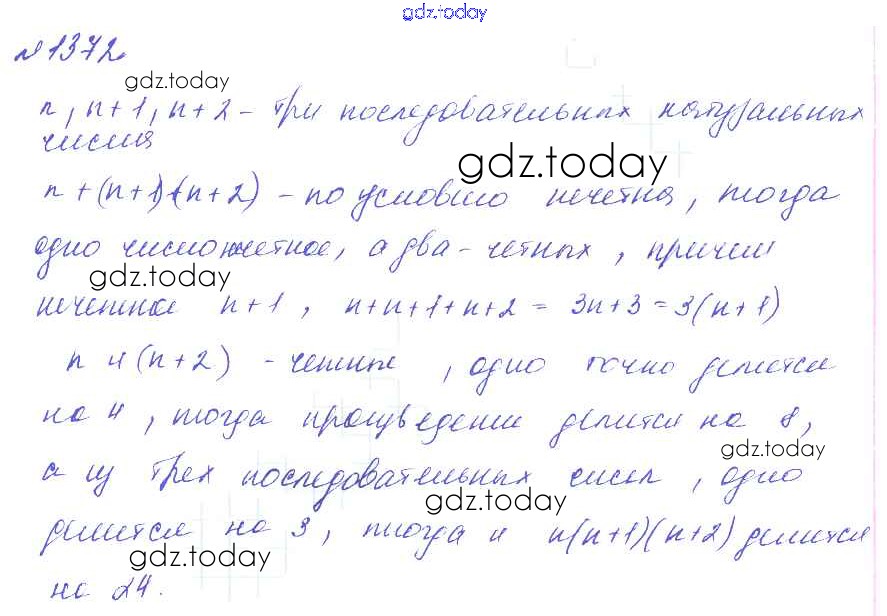 gdz.today
№1372
gdz.today
n, n+1, n+2 – три последовательных натуральных
числа
gdz.today
n + (n+1)+(n+2) – по условию нечетна, тогда
одно число нечетное, а два – четных, причем
gdz.today
нечетное n+1, n+n+1+n+2 = 3n+3 = 3(n+1)
n и (n+2) – четные, одно точно делется
на 4, тогда произведение делится на 8,
gdz.today
а из трех последовательных чисел, одно
gdz.today
делится на 3, тогда и n(n+1)(n+2) делится
gdz.today
на 24.